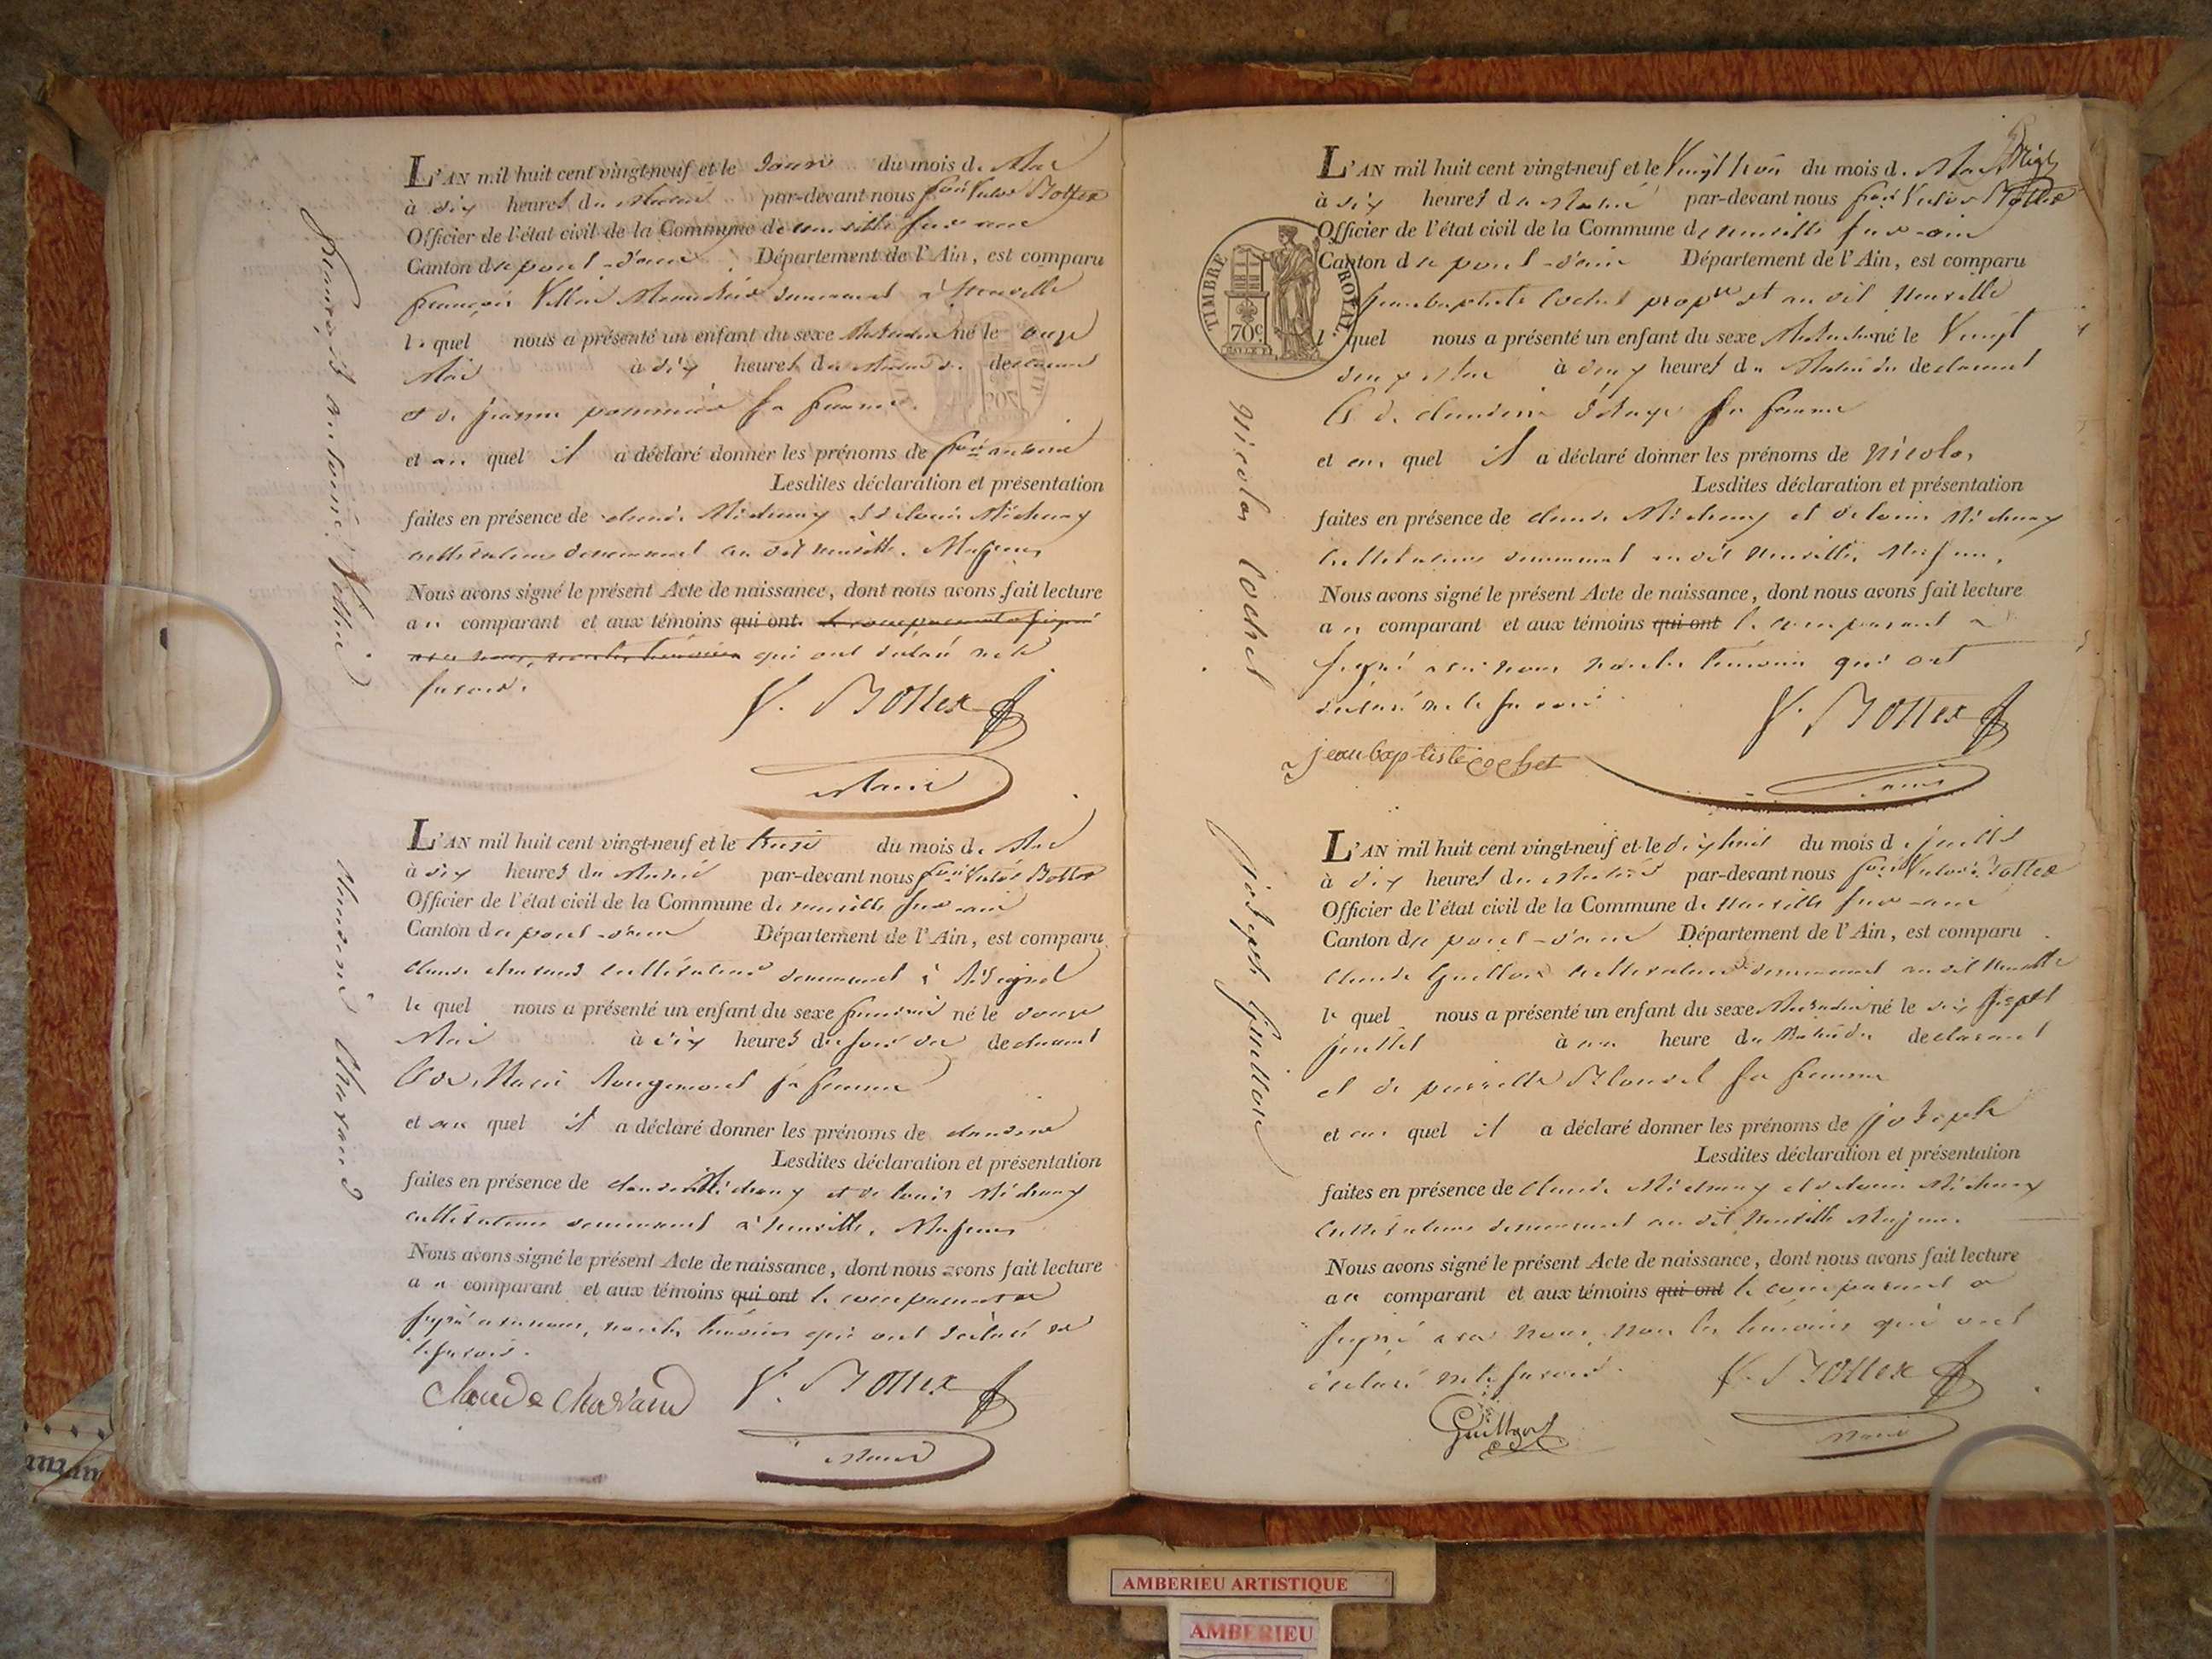 L'AN mil huit cent vingt-neuf et le Douze du mois de Mai
à dix heures du Matin par-devant nous françois Victor Bottex
Officier de l'état civil de la Commune de neuville sur ain
Canton de pont-d'ain Département de l'Ain, est comparu
françois demeurant à Neuville
lequel nous a présenté un enfant du sexe Masculin né le onze
Mai à dix heures du Matin de declarant
et de jeanne sa femme
et auquel il a déclaré donner les prénoms de fois antoine
Lesdites déclaration et présentation
faites en présence de claude Michaux et de louis Michaux
cultivateurs demeurant au dit neuville. Majeurs
Nous avons signé le présent Acte de naissance, dont nous avons fait lecture
au comparant et aux témoins qui ont le comparant a signé
avec nous, non les témoins qui ont déclaré ne le
savoir.
V. Bottex
Maire
françois antoine
L'AN mil huit cent vingt-neuf et le treize du mois de Mai
à dix heures du Matin par-devant nous fois Victor Bottex
Officier de l'état civil de la Commune de neuville sur ain
Canton de pont-d'ain Département de l'Ain, est comparu
claude charvand cultivateur demeurant à
lequel nous a présenté un enfant du sexe feminin né le douze
Mai à dix heures du soir de declarant
et de Marie Rougemont sa femme
et auquel il a déclaré donner les prénoms de claudine
Lesdites déclaration et présentation
faites en présence de claude Michaux et de louis Michaux
cultivateurs demeurant à neuville. Majeurs
Nous avons signé le présent Acte de naissance, dont nous avons fait lecture
au comparant et aux témoins qui ont le comparant a
signé avec nous, non les témoins qui ont déclaré ne
le savoir.
claude charvand V. Bottex
Maire
claudine charvand
L'AN mil huit cent vingt-neuf et le Vingt trois du mois de Mai
à dix heures du Matin par-devant nous fois Victor Bottex
Officier de l'état civil de la Commune de neuville sur-ain
Canton de pont-d'ain Département de l'Ain, est comparu
TIMBRE ROYAL
70c
jean baptiste cochet propre et au dit Neuville
lequel nous a présenté un enfant du sexe Masculin né le Vingt
deux Mai à deux heures du Matin de declarant
et de claudine sa femme
et auquel il a déclaré donner les prénoms de Nicolas
Lesdites déclaration et présentation
faites en présence de claude Michaux et de louis Michaux
cultivateurs demeurant au dit Neuville, Majeurs,
Nous avons signé le présent Acte de naissance, dont nous avons fait lecture
au comparant et aux témoins qui ont le comparant a
signé avec nous non les témoins qui ont
déclaré ne le savoir.
V. Bottex
jean baptiste cochet
Maire
Nicolas Cochet
L'AN mil huit cent vingt-neuf et le dix huit du mois de juillet
à dix heures du Matin par-devant nous fois Victor Bottex
Officier de l'état civil de la Commune de Neuville sur-ain
Canton de pont-d'ain Département de l'Ain, est comparu
claude Guillon cultivateur demeurant au dit Neuville
lequel nous a présenté un enfant du sexe Masculin né le dix sept
juillet à une heure du Matin de declarant
et de pierrette sa femme
et auquel il a déclaré donner les prénoms de joseph
Lesdites déclaration et présentation
faites en présence de claude Michaux et de louis Michaux
cultivateurs demeurant au dit Neuville Majeurs.
Nous avons signé le présent Acte de naissance, dont nous avons fait lecture
au comparant et aux témoins qui ont le comparant a
signé avec nous non les témoins qui ont
déclaré ne le savoir. V. Bottex
Guillon
Maire
joseph Guillon
AMBERIEU ARTISTIQUE
AMBERIEU